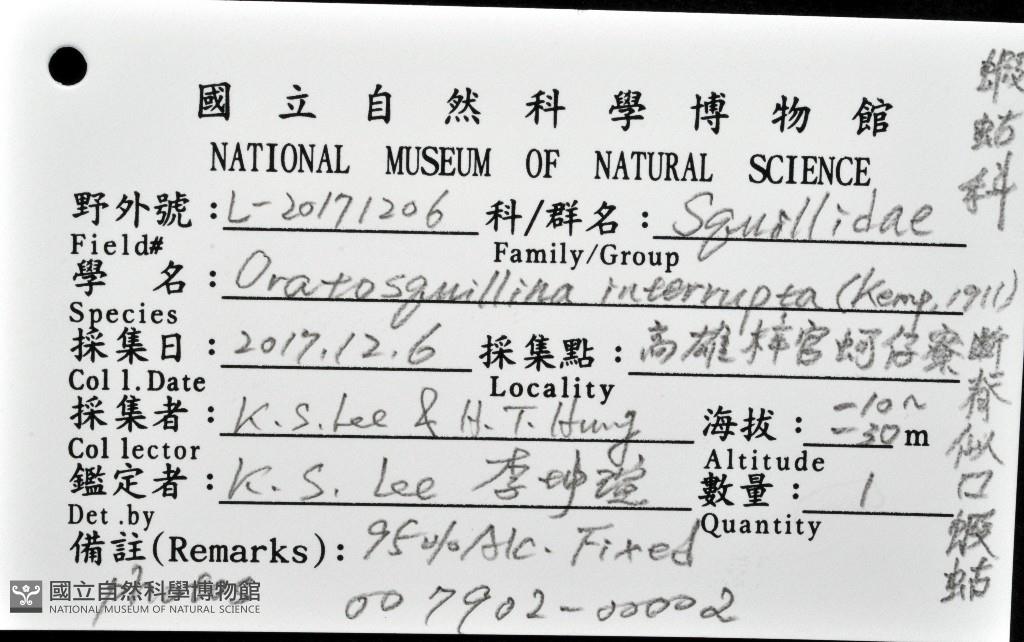 國立自然科學博物館
NATIONAL MUSEUM OF NATURAL SCIENCE
野外號: L-20171206 科/群名: Squillidae
Field# Family/Group
學 名: Oratosquillina interrupta (Kemp, 1911)
Species
採集日: 2017.12.6 採集點: 高雄梓官蚵仔寮
Coll.Date Locality
採集者: K.S. Lee & H.T. Hung 海拔: -10~-30 m
Collector Altitude
鑑定者: K. S. Lee 李坤瑄 數量: 1
Det.by Quantity
備註(Remarks): 95% Alc. Fixed
007902-00002
蝦蛄科
斷脊似口蝦蛄
國立自然科學博物館
NATIONAL MUSEUM OF NATURAL SCIENCE